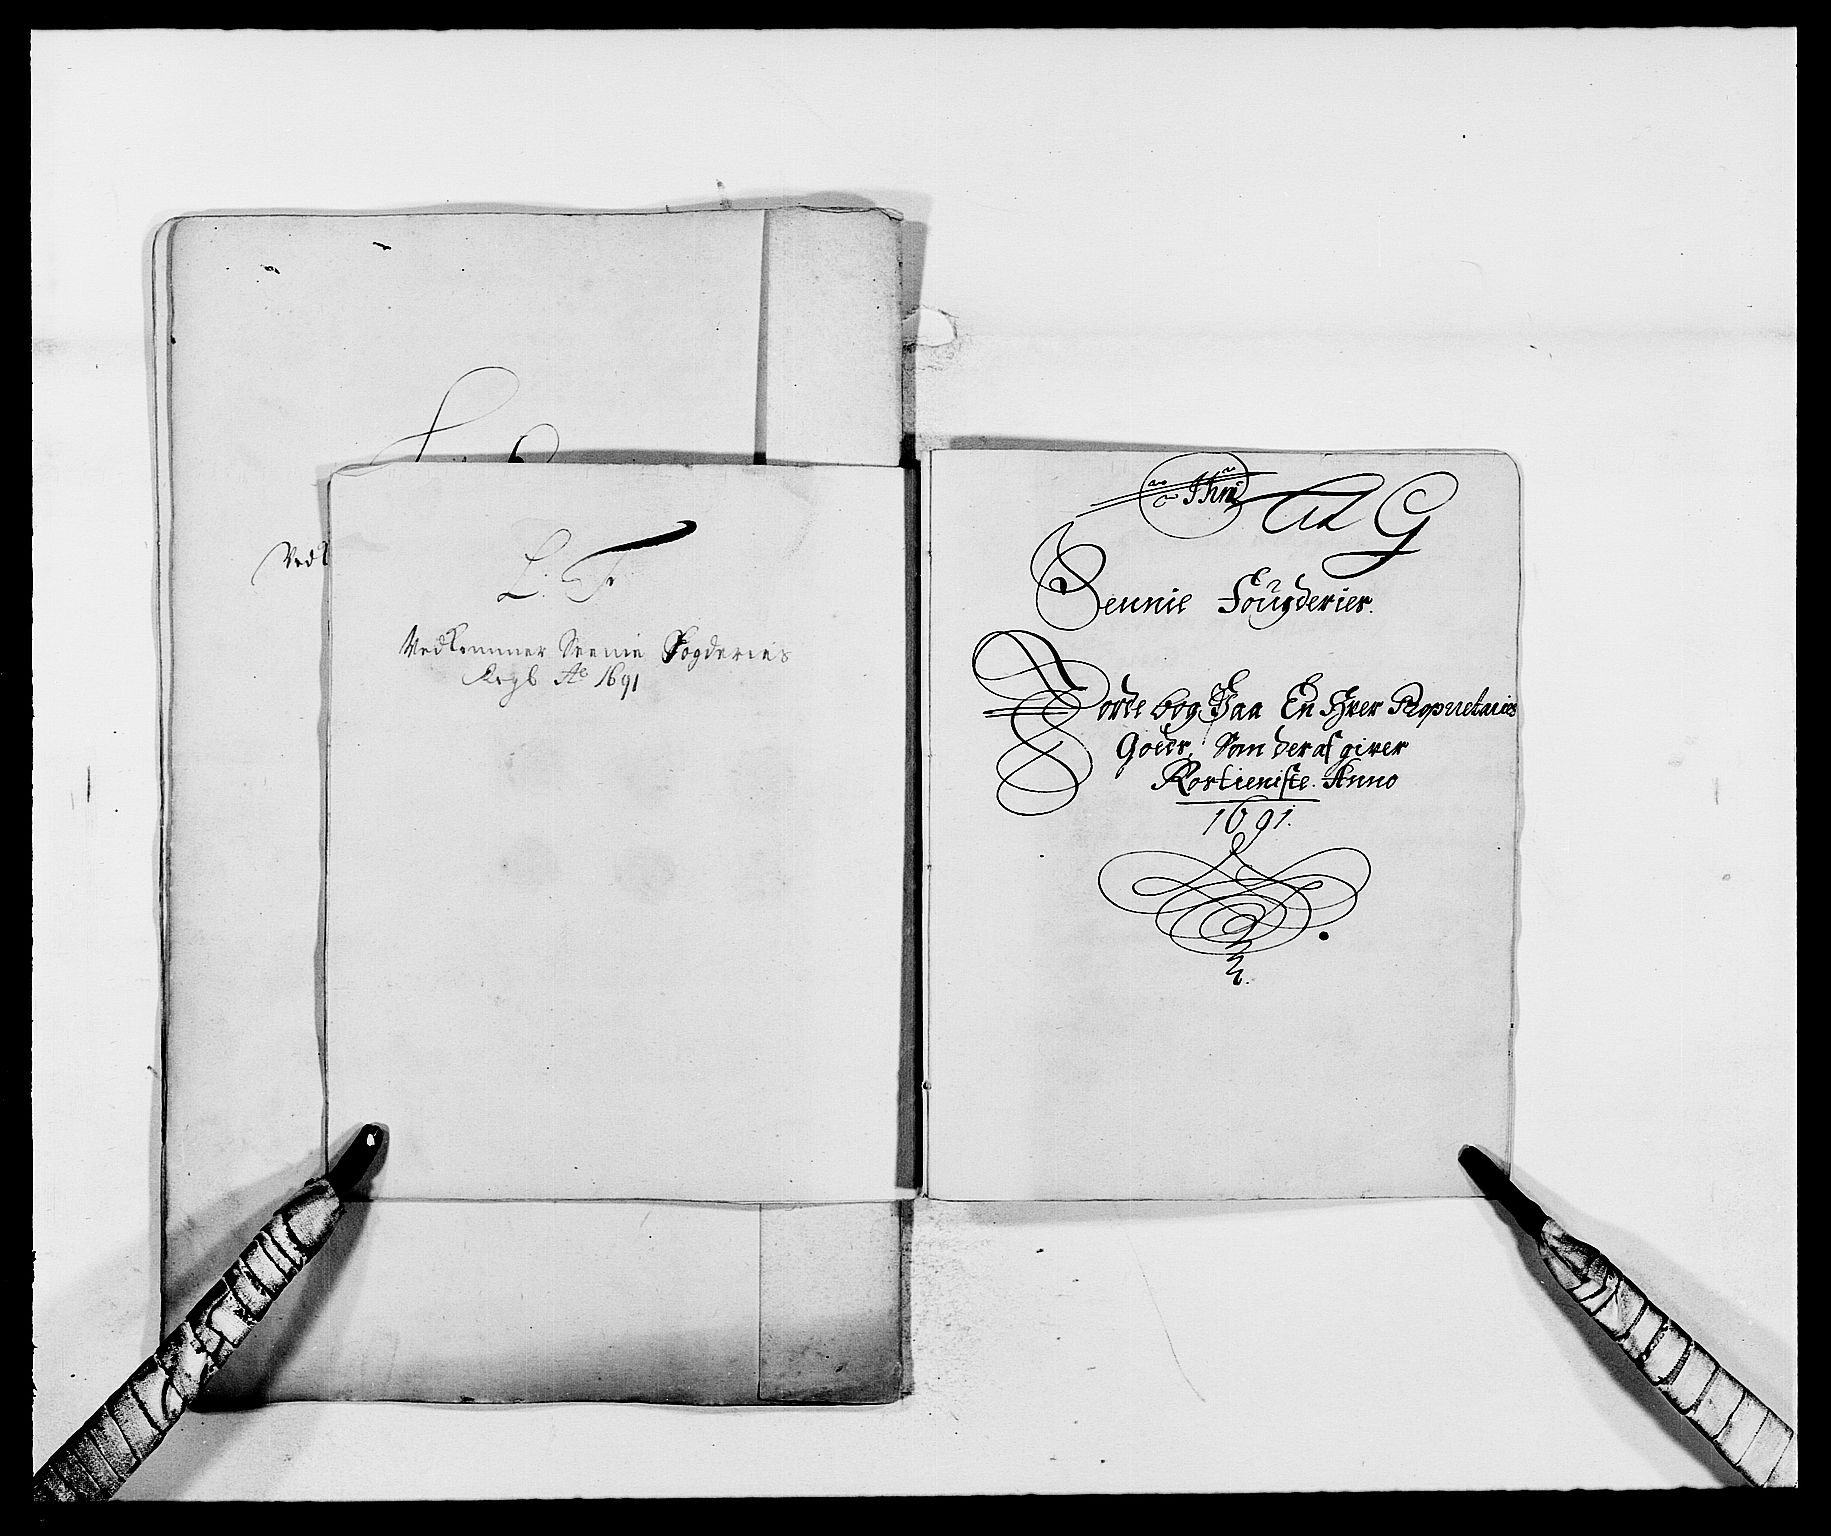 Ved
L: F
Vedkommer Seenie Fogderies
Regb Ao 1691
Ad G
Sennie Fougderier.
Jorde bog Paa En hver Roprietaries
Goedr, Som deraf giver
Rostieniste. Anno
1691.